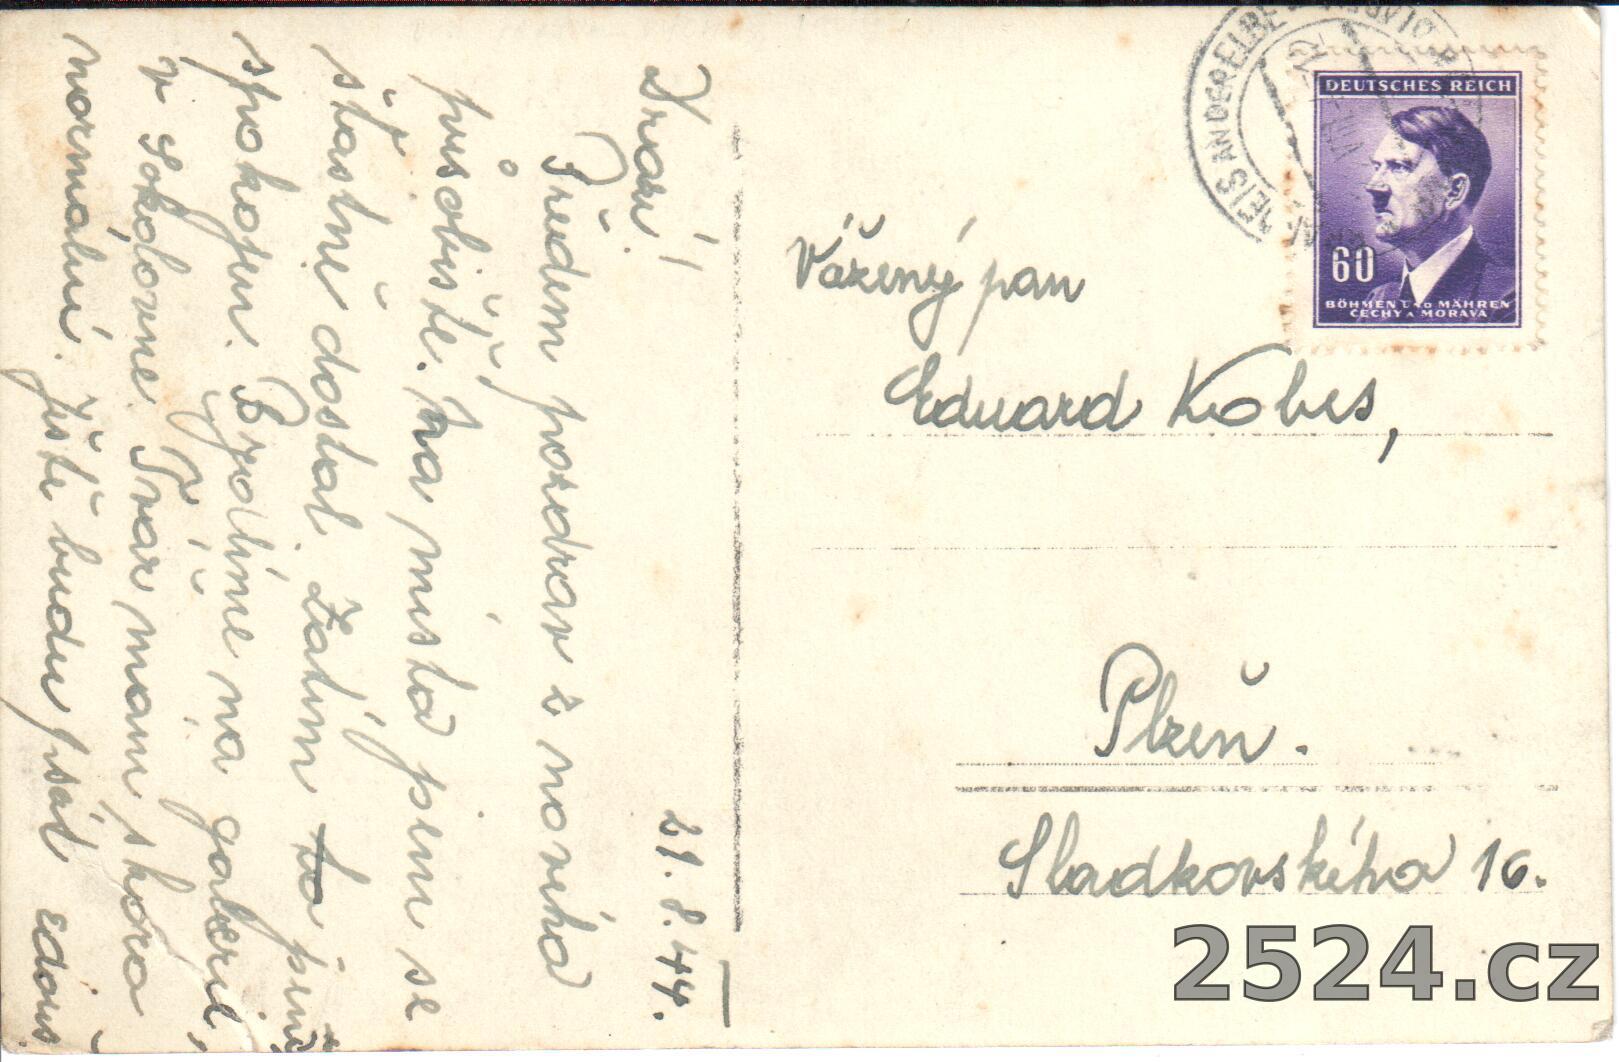 21.8.44.
Drazí!
Předem pozdrav z nového
působiště. Na místo jsem se
šťastně dostal. Zatím to jsem
spokojen. Bydlíme na galerii,
v Sokolovně. Tvar mam skoro
normální. Ještě budu psát
DEUTSCHES REICH
60
BÖHMEN u. MÄHREN
ČECHY A MORAVA
AN DER ELBE
Vážený pan
Eduard Kobes,
Plzeň.
Sladkovského 16.
2524.cz